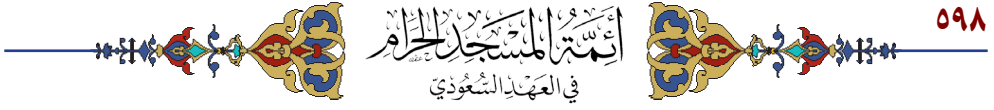 ٥٩٨
أَئِمَّةُ المَسْجِدِ الحَرَامِ
في العَهْدِ السُّعُوْدِيّ